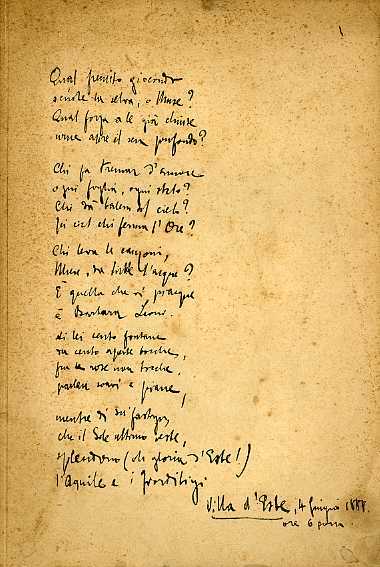 Qual fremito giocondo
scuote la selva, o Muse?
Qual forza a le già chiuse
urne apre il sen profondo?
Chi fa tremar d'amore
ogni foglia, ogni stelo?
Chi dà baleni al cielo?
ciel chi ferma l'Ore?
Chi leva le canzoni,
Muse, da tutte l'acque?
È quella che vi piacque
è Barbara Leoni.
di lei cento fontane
da cento aperte bocche,
fra le rose non tocche,
parlan soavi e piane,
mentre di su' fastigi,
che il Sole ultimo veste,
splendono (oh gloria d'Este!)
l'Aquile e i Fiordiligi
Villa d'Este, 4 giugno 1888.
ore 6 pom.